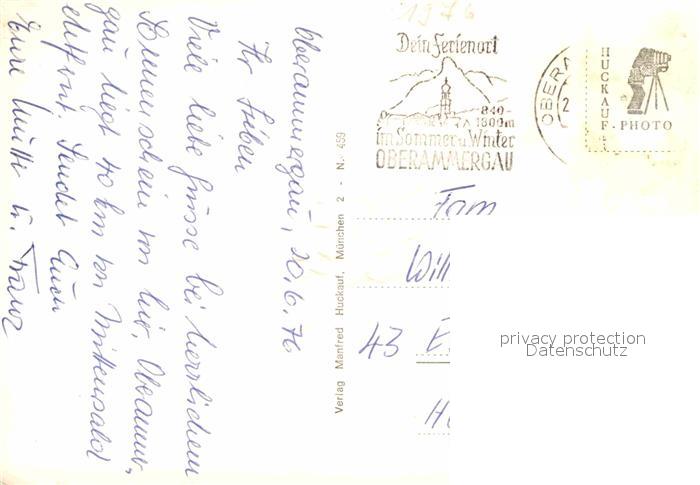 Oberammergau, 20.6.76
Ihr Lieben
Viele liebe Grüsse bei herrlichem
Sonnenschein von hier. Oberammer-
gau liegt 40 km von Mittenwald
entfernt. Sendet Euch
Eure Mutti u. Franz
Verlag Manfred Huckauf, München 2 - Nr. 459
1976
Dein Ferienort
840-
1800m
im Sommer u. Winter
OBERAMMERGAU
OBERA
2
HUCKAUF-PHOTO
Fam
Will
43 E
H
privacy protection
Datenschutz